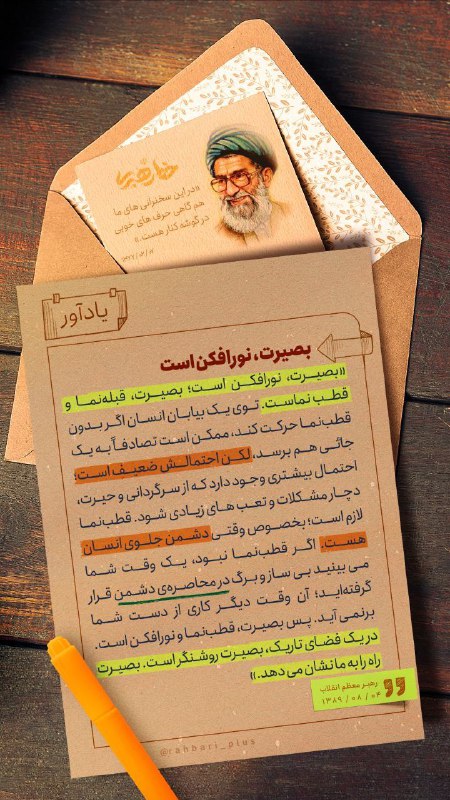 خط رهبری
«در این سخنرانی های ما
هم گاهی حرف های خوبی
در گوشه کنار هست.»
یادآور
بصیرت، نورافکن است
«بصیرت، نورافکن است؛ بصیرت، قبله‌نما و
قطب نماست. توی یک بیابان انسان اگر بدون
قطب‌نما حرکت کند، ممکن است تصادفاً به یک
جائی هم برسد، لکن احتمالش ضعیف است؛
احتمال بیشتری وجود دارد که از سرگردانی و حیرت،
دچار مشکلات و تعب های زیادی شود. قطب‌نما
لازم است؛ بخصوص وقتی دشمن جلوی انسان
هست. اگر قطب‌نما نبود، یک وقت شما
می بینید بی ساز و برگ در محاصره‌ی دشمن قرار
گرفته‌اید؛ آن وقت دیگر کاری از دست شما
برنمی آید. پس بصیرت، قطب‌نما و نورافکن است.
در یک فضای تاریک، بصیرت روشنگر است. بصیرت
راه را به ما نشان می دهد.»
رهبر معظم انقلاب
۱۳۸۹ / ۰۸ / ۰۴
@rahbari_plus